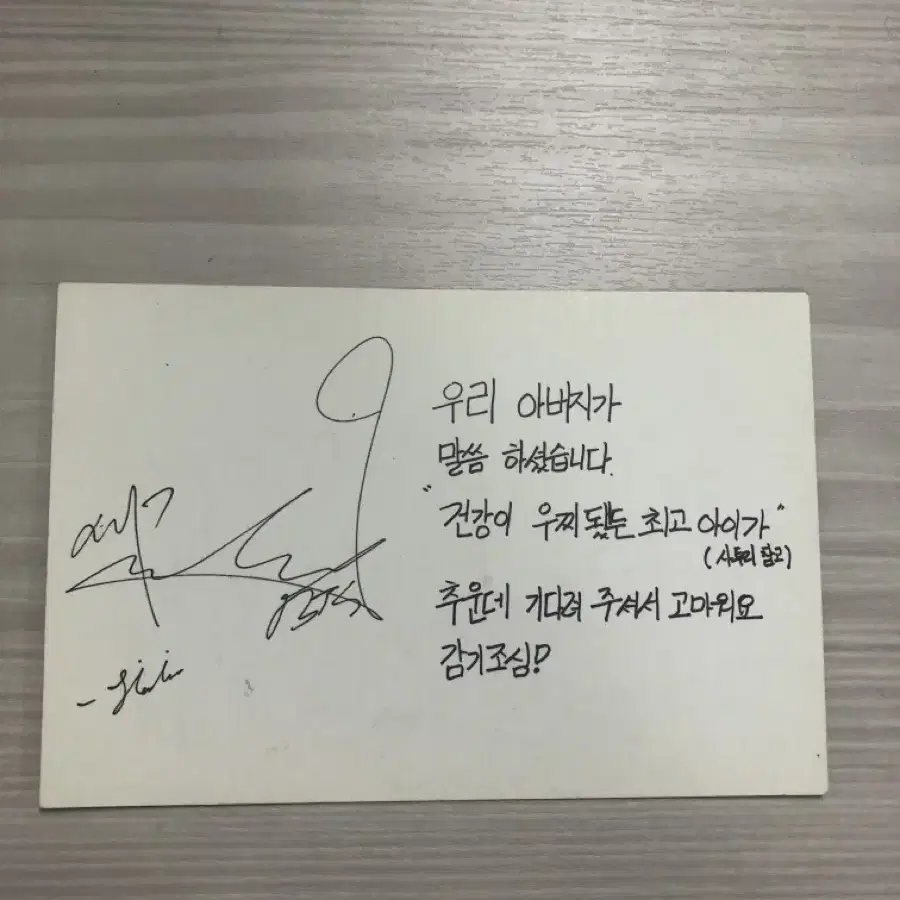 우리 아버지가
말씀 하셨습니다.
"건강이 우찌됐든 최고 아이가"
(사투리 참고)
추운데 기다려 주셔서 고마워요
감기조심!